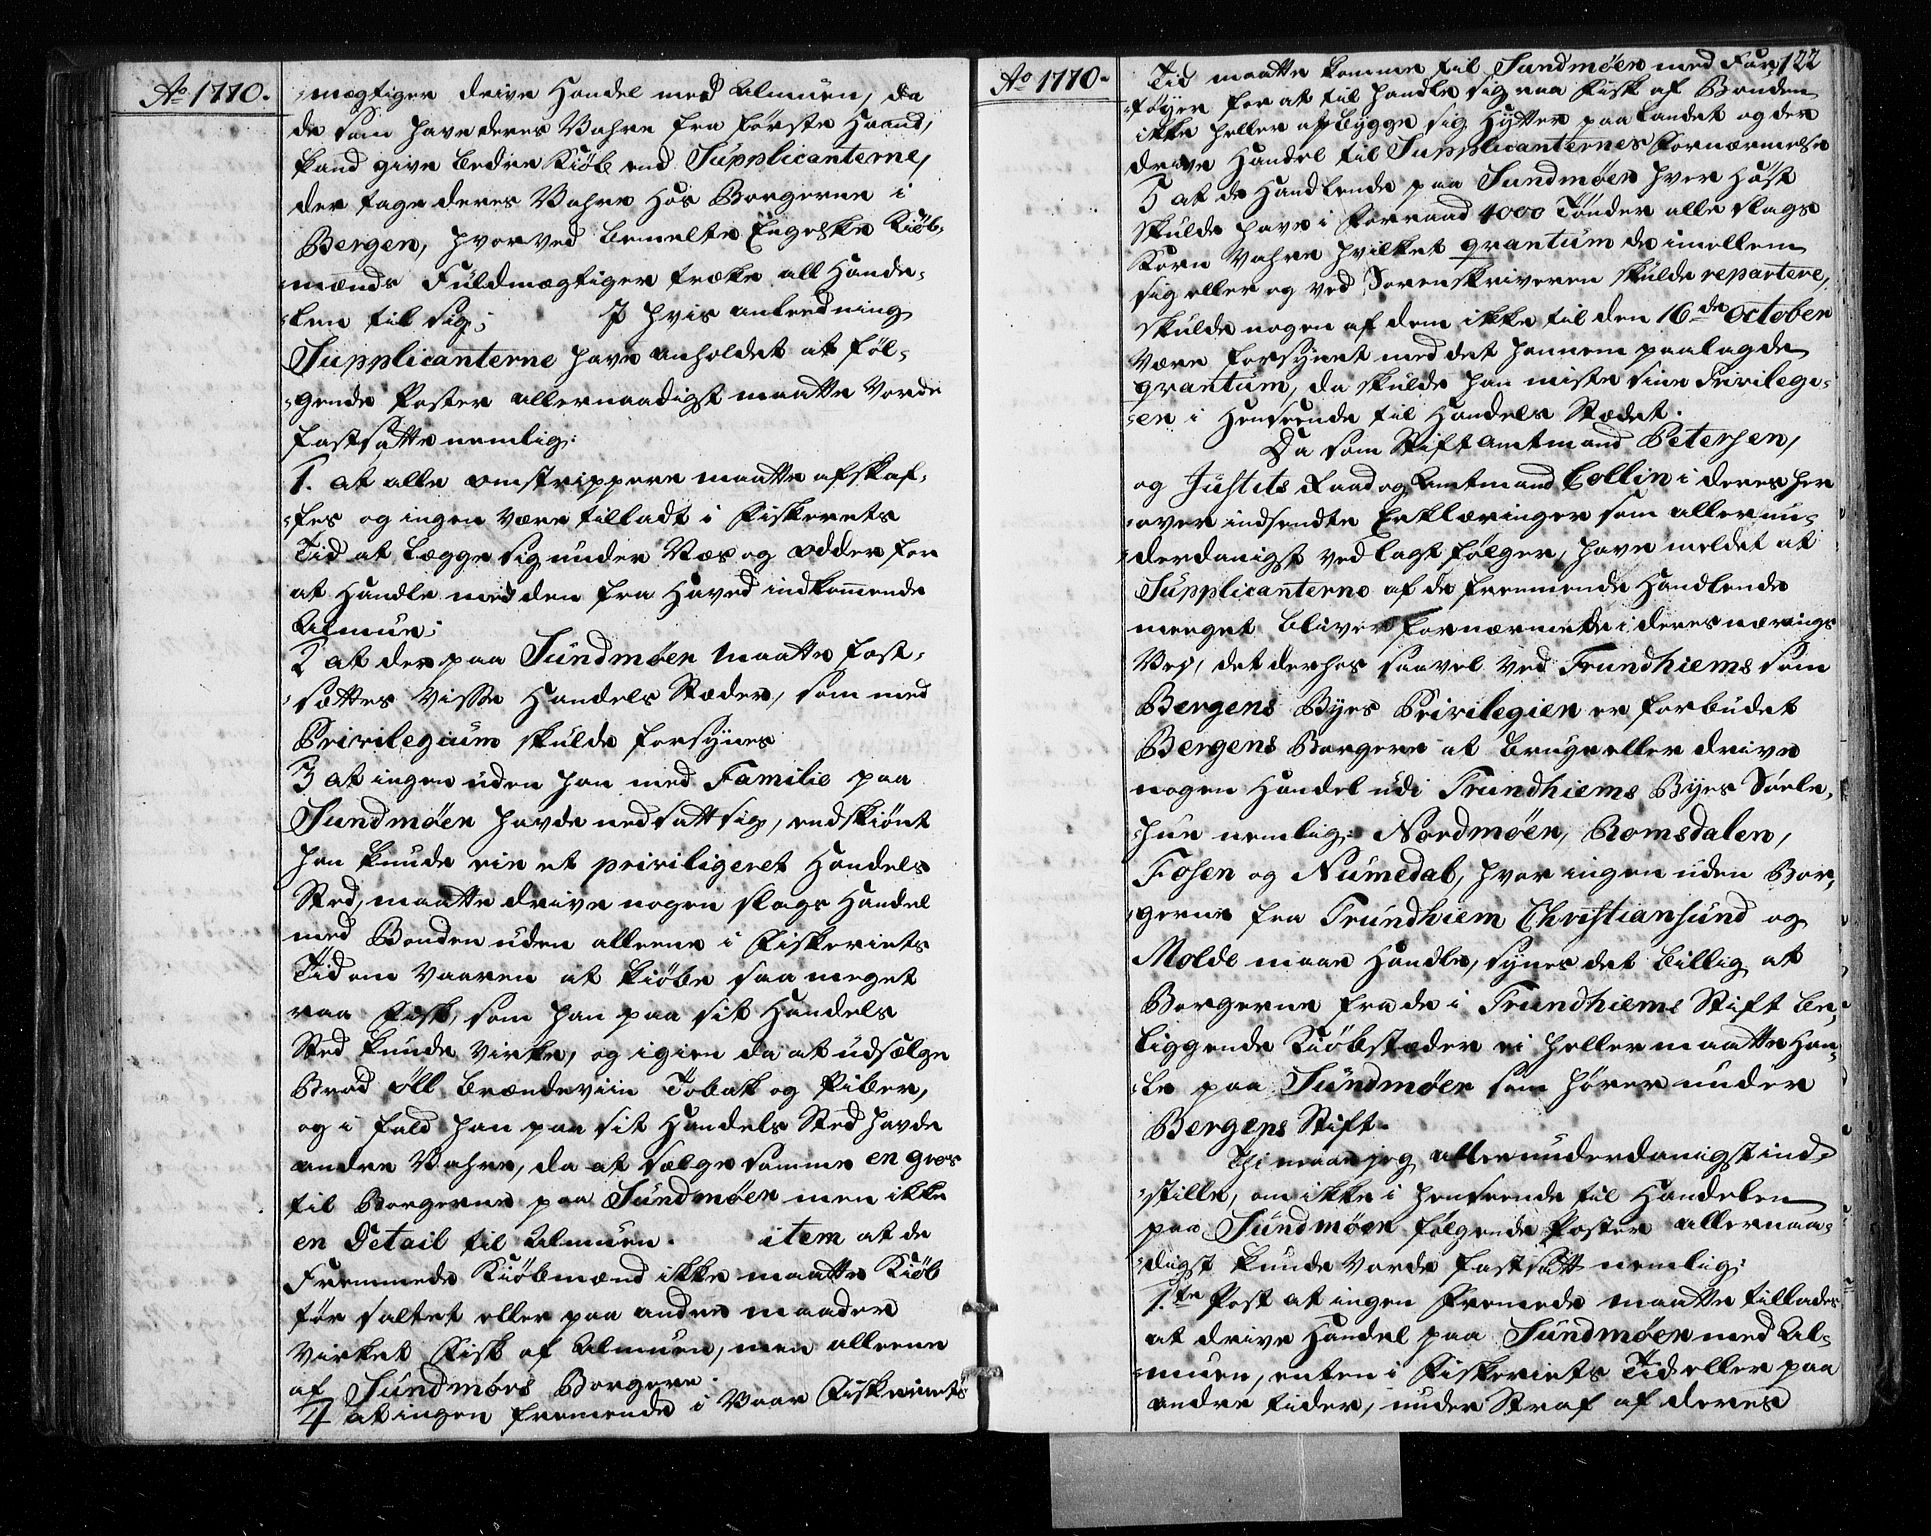 Ao 1770.
-mægtiger drive Handel med Almuen, da
de som have deres Vahre fra første Haand,
kand give bedre Kiøb end Supplicanterne,
der tage deres Vahre hos Borgerne i
Bergen, hvorved bemelte Engelske Kiøb-
-mænds Fuldmægtiger trække all Hande-
-len til sig; I hvis anledning
Supplicanterne have anholdet at føl-
-gende Poster allernaadigst maatte vorde
fastsatte nemlig:
1. at alle omstrippere maatte afskaf-
-fes og ingen være tilladt i Fiskerets
Tid at Lægge sig under Næs og odder for
at Handle med den fra Haved indkommende
Almue;
2 at der paa Sundmøer maatte fast-
-sættes visse Handels Stæder, som med
Privilegium skulde forsynes
3 at ingen uden han med Familie paa
Sundmøer havde nedsatt sig, endskiønt
han kunde eie et priviligeret Handels
Sted, maatte drive nogen slags Handel
med Bonden uden alleene i Fiskeriets
Tid om Vaaren at kiøbe saa meget
raa Fisk, som han paa sit Handels
Sted kunde virke, og igien da at udsælge
Brød øll brændeviin Tobak og Piber,
og i fald han paa sit Handels Sted havde
andre Vahre, da at sælge samme en gros
til Borgerne paa Sundmøer men ikke
en Detail til Almuen. item at de
Fremmede Kiøbmænd ikke maatte Kiøbe
tør saltet eller paa anden maader
virket Fisk af Almuen, men alleene
af Sundmørs Borgere.
4 at ingen fremmende i Vaar Fiskeriets
Ao 1770. 122
Tid maatte komme til Sundmøer med Far-
-tøyer for at til handle sig raa Fisk af Bonden
ikke heller at bygge sig Hytter paa Landet og der
drive Handel til Supplicanternes Fornærmelse
5 at de Handlende paa Sundmøer hver Høst
skulde have i Forraad 4000 Tønder alle slags
Korn Vahre hvilket qvantum de imellem
sig eller og ved Sorenskriveren skulde repartere,
skulde nogen af dem ikke til den 16de October
være forsynet med det hannem paalagde
qvantum, da skulde han miste sine Privilegi-
-en i Henseende til Handels Stædet.
Da som Stiftamtmand Petersen,
og Justits Raad og Amtmand Collin i deres her
-over indsendte Erklæringer som allerun-
-derdanigst vedlagt følger, have meldet at
Supplicanterne af de fremmende Handlende
meeget bliver fornærmede i deres nærings
Vej, det derhos saavel ved Trundhiems som
Bergens Byes Privilegier er forbudet
Bergens Borgere at bruge eller drive
nogen Handel udi Trundhiems Byes Søele-
-hun nemlig: Nordmøer, Romsdalen,
Fosen og Numedal, hvor ingen uden Bor-
-gerne fra Trundhiem Christiansund og
Molde maae Handle, synes det billig at
Borgerne fra de i Trundhiems Stift be-
liggende Kiøbstæder ei heller maatte Han-
-le paa Sundmøer som hører under
Bergens Stift.
Thi maae jeg allerunderdanigst ind-
-stille, om ikke i henseende til Handelen
paa Sundmøer følgende Poster allernaa-
-digst kunde vorde fastsatt nemlig:
1.te Post at ingen Fremede maatte tillades
at drive Handel paa Sundmøer med Al-
-muen, enten i Fiskeriets Tid eller paa
andre tider, under Straf af deres